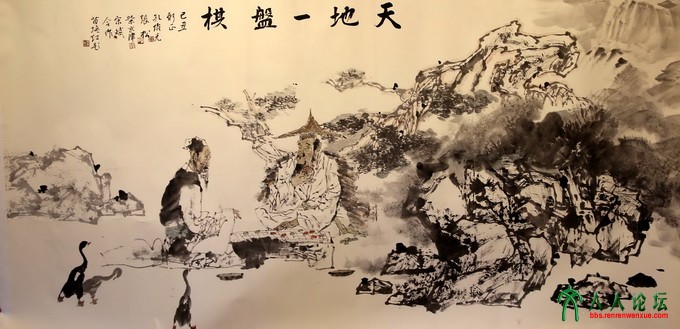 天地一盤棋
己丑
新正
孔維克
張松
合作
人人论坛
bbs.renrenwenxue.com